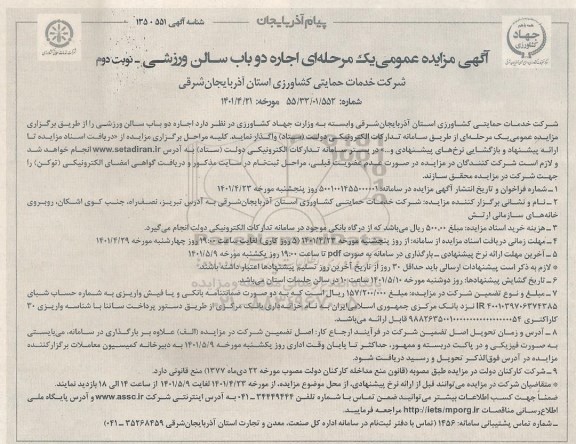 پیام آذربایجان
شناسه آگهی ۱۳۵۰۵۵۱
آگهی مزایده عمومی یک مرحله‌ای اجاره دو باب سالن ورزشی - نوبت دوم
شرکت خدمات حمایتی کشاورزی استان آذربایجان‌شرقی
شماره: ۵۵/۳۳/۰۱/۵۵۲ مورخه: ۱۴۰۱/۴/۲۱
شرکت خدمات حمایتی کشاورزی استان آذربایجان‌شرقی وابسته به وزارت جهاد کشاورزی در نظر دارد اجاره دو باب سالن ورزشی را از طریق برگزاری
مزایده عمومی یک مرحله‌ای از طریق سامانه تدارکات الکترونیکی دولت (ستاد) واگذار نماید. کلیه مراحل برگزاری مزایده از «دریافت اسناد مزایده تا
ارائه پیشنهاد و بازگشایی نرخ‌های پیشنهادی و...» در بستر سامانه تدارکات الکترونیکی دولت (ستاد) به آدرس www.setadiran.ir انجام خواهد شد
و لازم است شرکت کنندگان در مزایده در صورت عدم عضویت قبلی، مراحل ثبت‌نام در سایت مذکور و دریافت گواهی امضای الکترونیکی (توکن) را
جهت شرکت در مزایده محقق سازند.
۱ـ شماره فراخوان و تاریخ انتشار آگهی مزایده در سامانه: روز پنجشنبه مورخه ۱۴۰۱/۴/۲۳
۲ـ نام و نشانی برگزار کننده مزایده: شرکت خدمات حمایتی کشاورزی استان آذربایجان‌شرقی به آدرس تبریز، نصفراه، جنب کوی اشکان، روبروی
خانه‌های سازمانی ارتش
۳ـ هزینه خرید اسناد مزایده: مبلغ ۵۰۰.۰۰۰ ریال می‌باشد که از درگاه بانکی موجود در سامانه تدارکات الکترونیکی دولت انجام می‌گیرد.
۴ـ مهلت زمانی دریافت اسناد مزایده از سامانه: از روز پنجشنبه مورخه ۱۴۰۱/۴/۲۳ (۵ روز کاری) لغایت ساعت ۱۹:۰۰ روز چهارشنبه مورخه ۱۴۰۱/۴/۲۹
۵ـ آخرین مهلت ارائه نرخ پیشنهادی ـ بارگذاری در سامانه به صورت pdf تا ساعت ۱۹:۰۰ روز یکشنبه مورخه ۱۴۰۱/۵/۹
* لازم به ذکر است پیشنهادات ارسالی باید حداقل ۳۰ روز از تاریخ آخرین روز تسلیم پیشنهادها اعتبار داشته باشند.
۶ـ تاریخ گشایش پیشنهادها: روز دوشنبه مورخه ۱۴۰۱/۵/۱۰ ساعت ۱۰ در سالن جلسات استان می‌باشد.
۷ـ مبلغ و نوع تضمین شرکت در مزایده: مبلغ ۱۵۷/۲۰۰/۰۰۰ ریال است که به دو صورت ضمانتنامه بانکی و یا فیش واریزی به شماره حساب شبای
نزد بانک مرکزی جمهوری اسلامی ایران به نام خزانه‌داری بانک مرکزی از طریق دستور پرداخت ساتنا با شناسه واریزی ۳۰
کاراکتری قابل ارائه می‌باشد.
۸ـ آدرس و زمان تحویل اصل تضمین شرکت در فرآیند ارجاع کار: اصل تضمین شرکت در مزایده (الف) علاوه بر بارگذاری در سامانه، می‌بایستی
به صورت فیزیکی و در پاکت دربسته و ممهور، حداکثر تا پایان وقت اداری روز یکشنبه مورخه ۱۴۰۱/۵/۹ به دبیرخانه کمیسیون معاملات برگزارکننده
مزایده در آدرس فوق‌الذکر تحویل و رسید دریافت شود.
۹ـ شرکت کارکنان دولت در مزایده طبق مصوبه (قانون منع مداخله کارکنان دولت مصوب مورخه ۲۲ دی‌ماه ۱۳۷۷) منع قانونی دارد.
* متقاضیان شرکت در مزایده می‌توانند قبل از ارائه نرخ پیشنهادی، از محل موضوع مزایده، از مورخه ۱۴۰۱/۴/۲۳ لغایت ۱۴۰۱/۵/۹ از ساعت ۱۴ الی ۱۸ بازدید نمایند.
ضمناً جهت کسب اطلاعات بیشتر می‌توانید ضمن تماس با شماره تلفن ۳۴۴۴۹۴۴۴ـ۰۴۱ به آدرس اینترنتی شرکت www.assc.ir و آدرس پایگاه ملی
اطلاع‌رسانی مناقصات http://iets/mporg.ir مراجعه فرمایید.
ـ شماره تماس پشتیبانی سامانه: ۱۴۵۶ (تماس با دفتر ثبت‌نام سامانه اداره کل صنعت، معدن و تجارت استان آذربایجان‌شرقی ۳۵۲۶۸۴۵۹ـ۰۴۱)